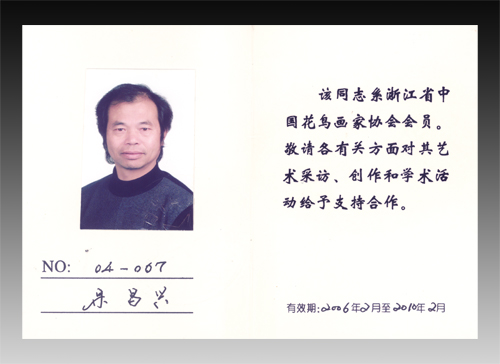 NO: 04-007
昌兴
该同志系浙江省中
国花鸟画家协会会员。
敬请各有关方面对其艺
术采访、创作和学术活
动给予支持合作。
有效期:2006年2月至2010年2月